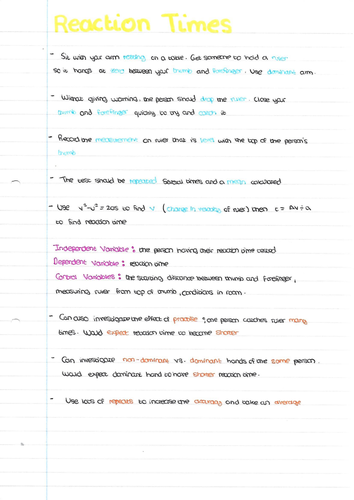 Reaction Times
- Sit with your arm resting on a table. Get someone to hold a ruler
so it hangs at zero between your thumb and forefinger. Use dominant arm.
- Without giving warning, the person should drop the ruler. Close your
thumb and forefinger quickly to try and catch it
- Record the measurement on ruler that is level with the top of the person's
thumb
- The test should be repeated several times and a mean calculated
- Use v²-u²=2as to find v (change in velocity of ruler) then t = Δv÷a
to find reaction time
Independent Variable : the person having their reaction time tested
Dependent Variable : reaction time
Control Variables : the starting distance between thumb and forefinger,
measuring ruler from top of thumb, conditions in room.
- Can also investigate the effect of practise : one person catches ruler many
times. Would expect reaction time to become shorter
- Can investigate non-dominant vs. dominant hands of the same person.
Would expect dominant hand to have shorter reaction time.
- Use lots of repeats to increase the accuracy and take an average